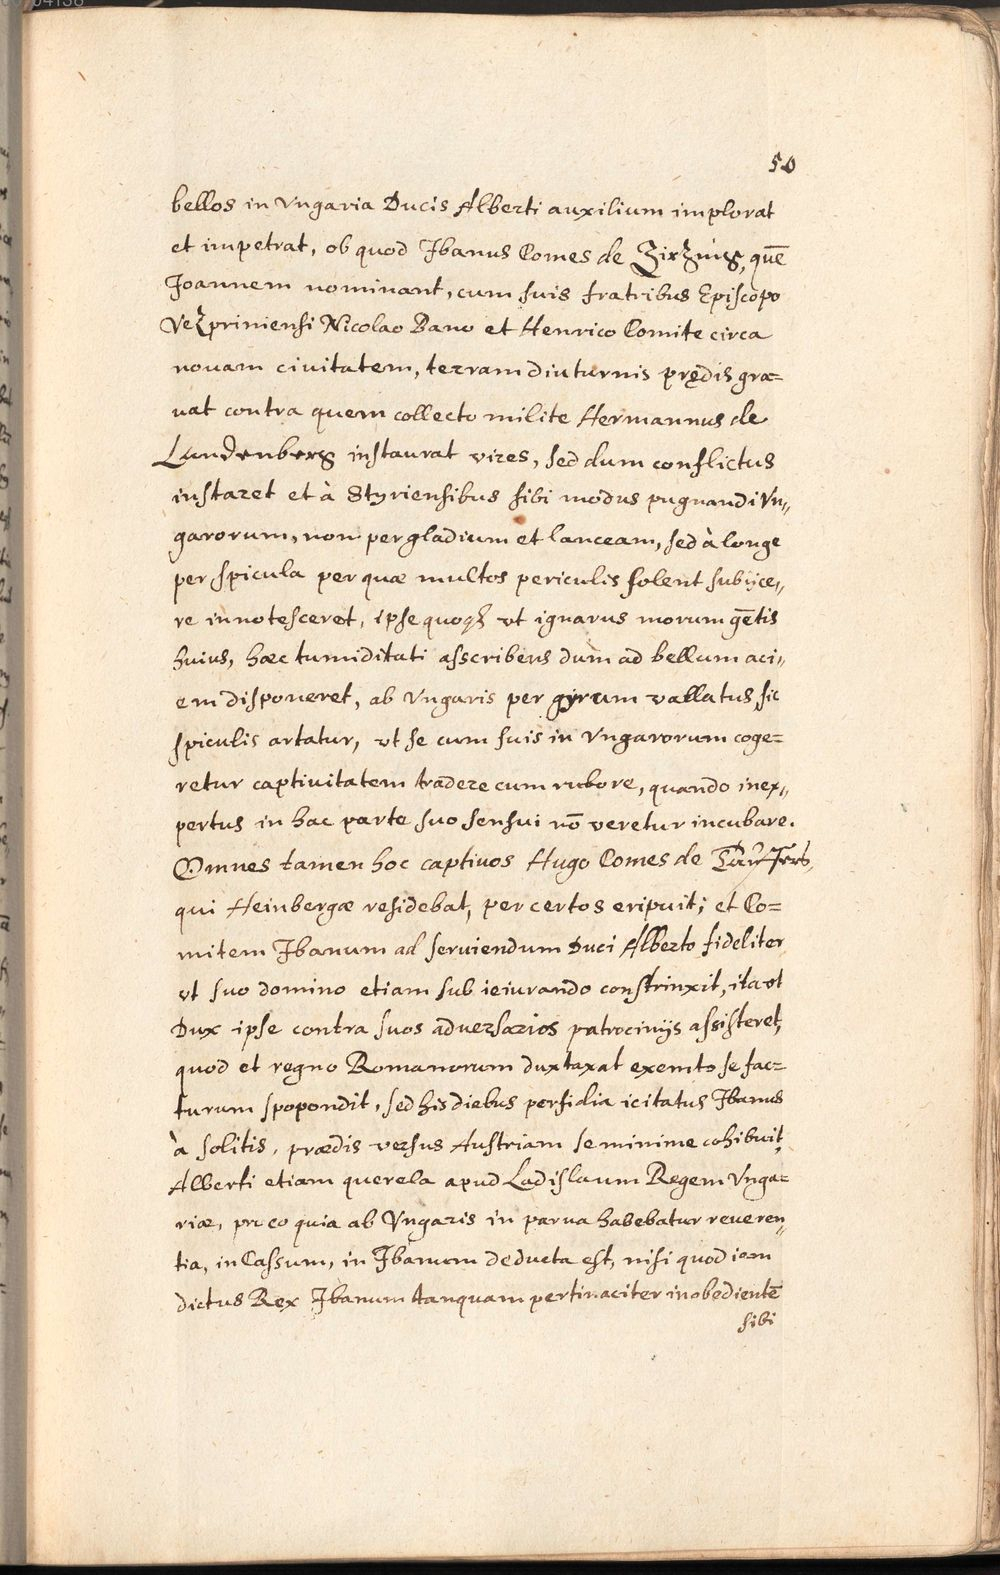 50
bellos in Vngaria Ducis Alberti auxilium implorat
et impetrat, ob quod Jbanus Comes de quē
Joannem nominant, cum suis fratribus Episcopo
Vezpriniensi Nicolao Bano et Henrico Comite circa
nouam ciuitatem, terram diuturnis prędis gra=
uat contra quem collecto milite Hermannus de
Landenberg instaurat vires, sed dum conflictus
instaret et à Styriensibus sibi modus pugnandi Vn„
garorum, non per gladium et lanceam, sed à longe
per spicula per quæ multos periculis solent subijce„
re innotesceret, ipse quoqʒ vt ignarus morum gētis
huius, hæc tumiditati asscribens dum ad bellum aci„
em disponeret, ab Vngaris per gyrum vallatus, sic
spiculis artatur, vt se cum suis in Vngarorum coge=
retur captiuitatem tradere cum rubore, quando inex„
pertus in hac parte suo sensui nō veretur incubare.
Omnes tamen hoc captiuos Hugo Comes de Taufers,
qui Heinbergæ residebat, per certos eripuit; et Co=
mitem Jbanum ad seruiendum Duci Alberto fideliter
vt suo domino etiam sub ieiurando constrinxit, ita vt
Dux ipse contra suos adversarios patrocinijs assisteret,
quod et regno Romanorum duxtaxat exemto se fac=
turum spopondit, sed his diebus perfidia icitatus Jbanus
à solitis, prædis versus Austriam se minime cohibuit,
Alberti etiam querela apud Ladislaum Regem Vnga=
riæ, pro eo quia ab Vngaris in parua habebatur reueren„
tia, in Cassum, in Jbanum deducta est, nisi quod iam
dictus Rex Jbanum tanquam pertinaciter inobedientē
sibi